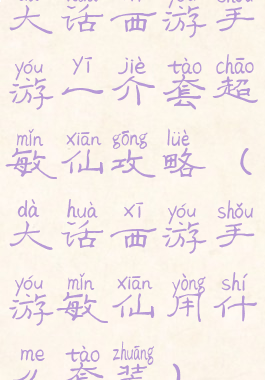 大话西游手
yóu yī jiè tào chāo
游一介套超
mǐn xiān gōng lüè
敏仙攻略（
dà huà xī yóu shǒu
大话西游手
yóu mǐn xiān yòng shí
游敏仙用什
me tào zhuāng
么套装）